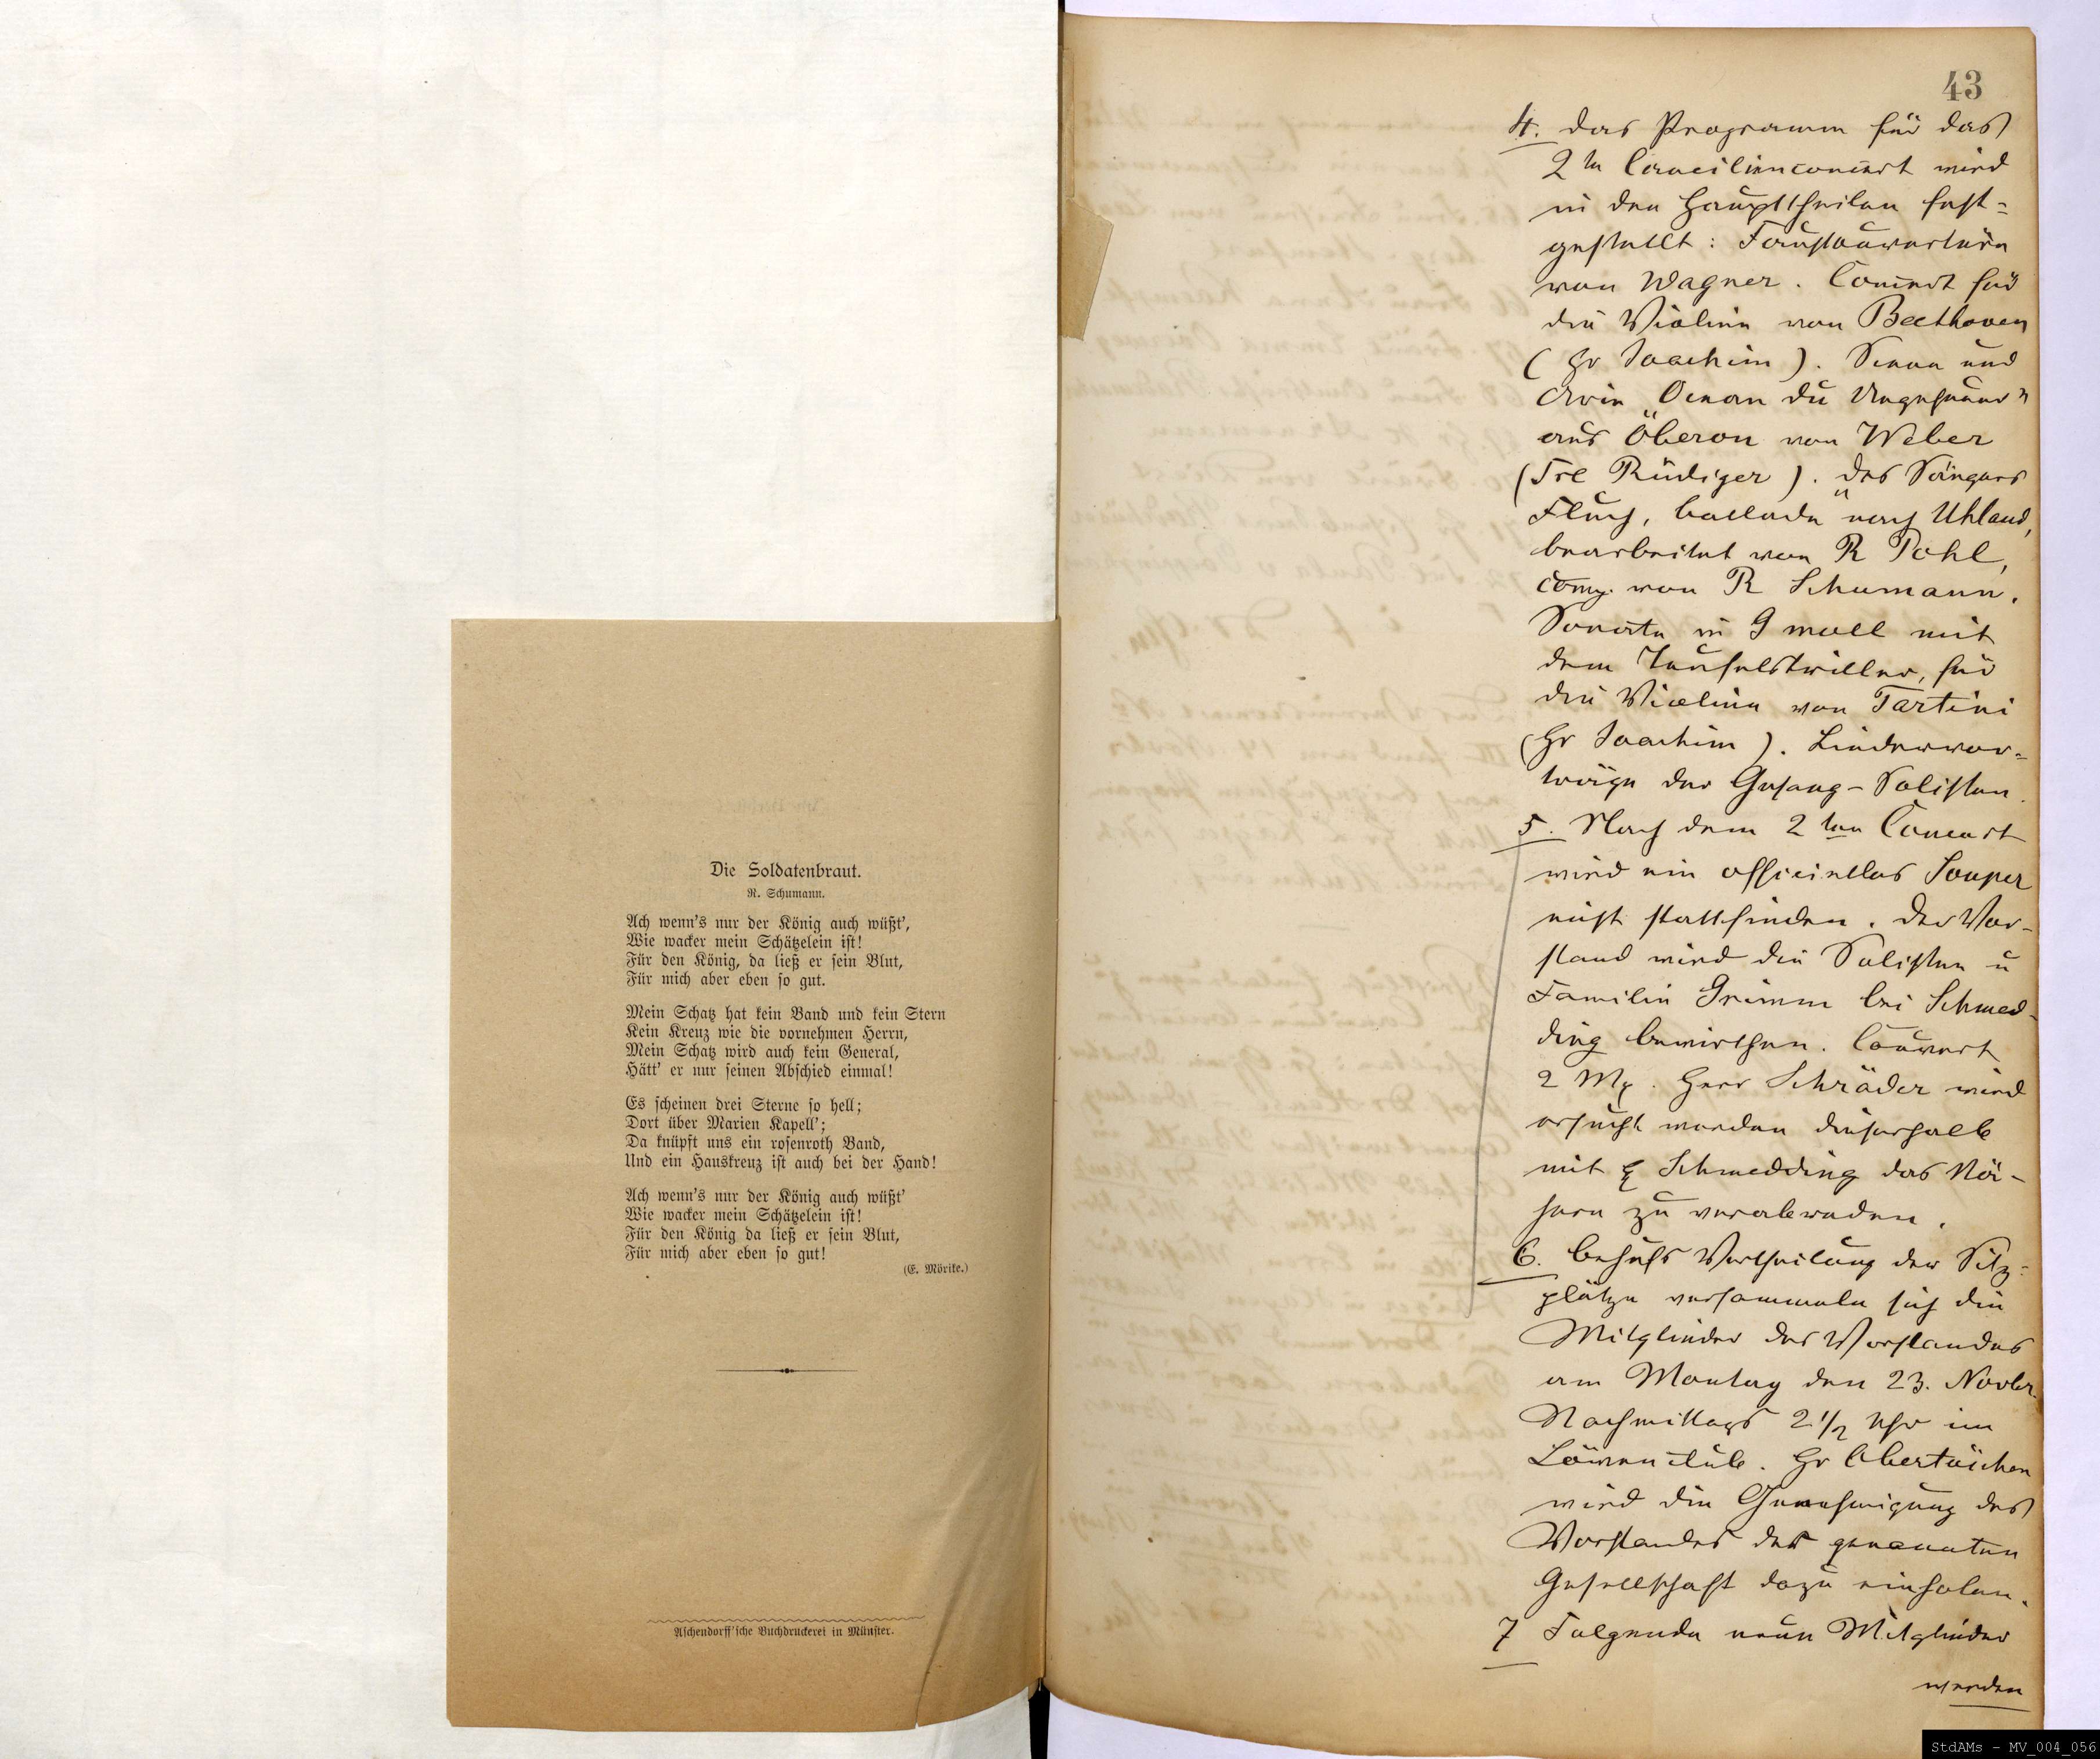 Die Soldatenbraut.
R. Schumann.
Ach wenn's nur der König auch wüßt',
Wie wacker mein Schätzelein ist!
Für den König, da ließ er sein Blut,
Für mich aber eben so gut.
Mein Schatz hat kein Band und kein Stern
Kein Kreuz wie die vornehmen Herrn,
Mein Schatz wird auch kein General,
Hätt' er nur seinen Abschied einmal!
Es scheinen drei Sterne so hell;
Dort über Marien Kapell';
Da knüpft uns ein rosenroth Band,
Und ein Hauskreuz ist auch bei der Hand!
Ach wenn's nur der König auch wüßt'
Wie wacker mein Schätzelein ist!
Für den König da ließ er sein Blut,
Für mich aber eben so gut!
(E. Mörike.)
Aschendorff'sche Buchdruckerei in Münster.
43
4. Das Programm für das
2te Caecilienconcert wird
in den Haupttheilen fest=
gestellt: Faustouverture
von Wagner. Concert für
die Violine von Beethoven
(Hr Joachim). Scene und
Arie „Ocean du Ungeheuer"
aus Oberon von Weber
(Frl Rüdiger). „Des Sängers
Fluch, Ballade nach Uhland,
bearbeitet von R Pohl,
comp. von R Schumann.
Sonate in G moll mit
dem Teufelstriller, für
die Violine von Tartini
(Hr Joachim). Liedervor=
träge der Gesang-Solisten.
5. Nach dem 2ten Concert
wird ein officielles Souper
nicht stattfinden. Der Vor-
stand wird die Solisten u
Familie Grimm bei Schmed-
ding bewirthen. Couvert
2 Mk. Herr Schräder wird
ersucht werden dieserhalb
mit Schmedding das Nä-
here zu verabreden.
6. Behufs Vertheilung der Sitz=
plätze versammeln sich die
Mitglieder des Vorstandes
am Montag den 23. Novbr.
Nachmittags 2 1/2 Uhr im
Löwenclub. Hr Obertüschen
wird die Genehmigung des
Vorstandes der genannten
Gesellschaft dazu einholen.
7 Folgende neun Mitglieder
werden
StdAMs - MV_004_056